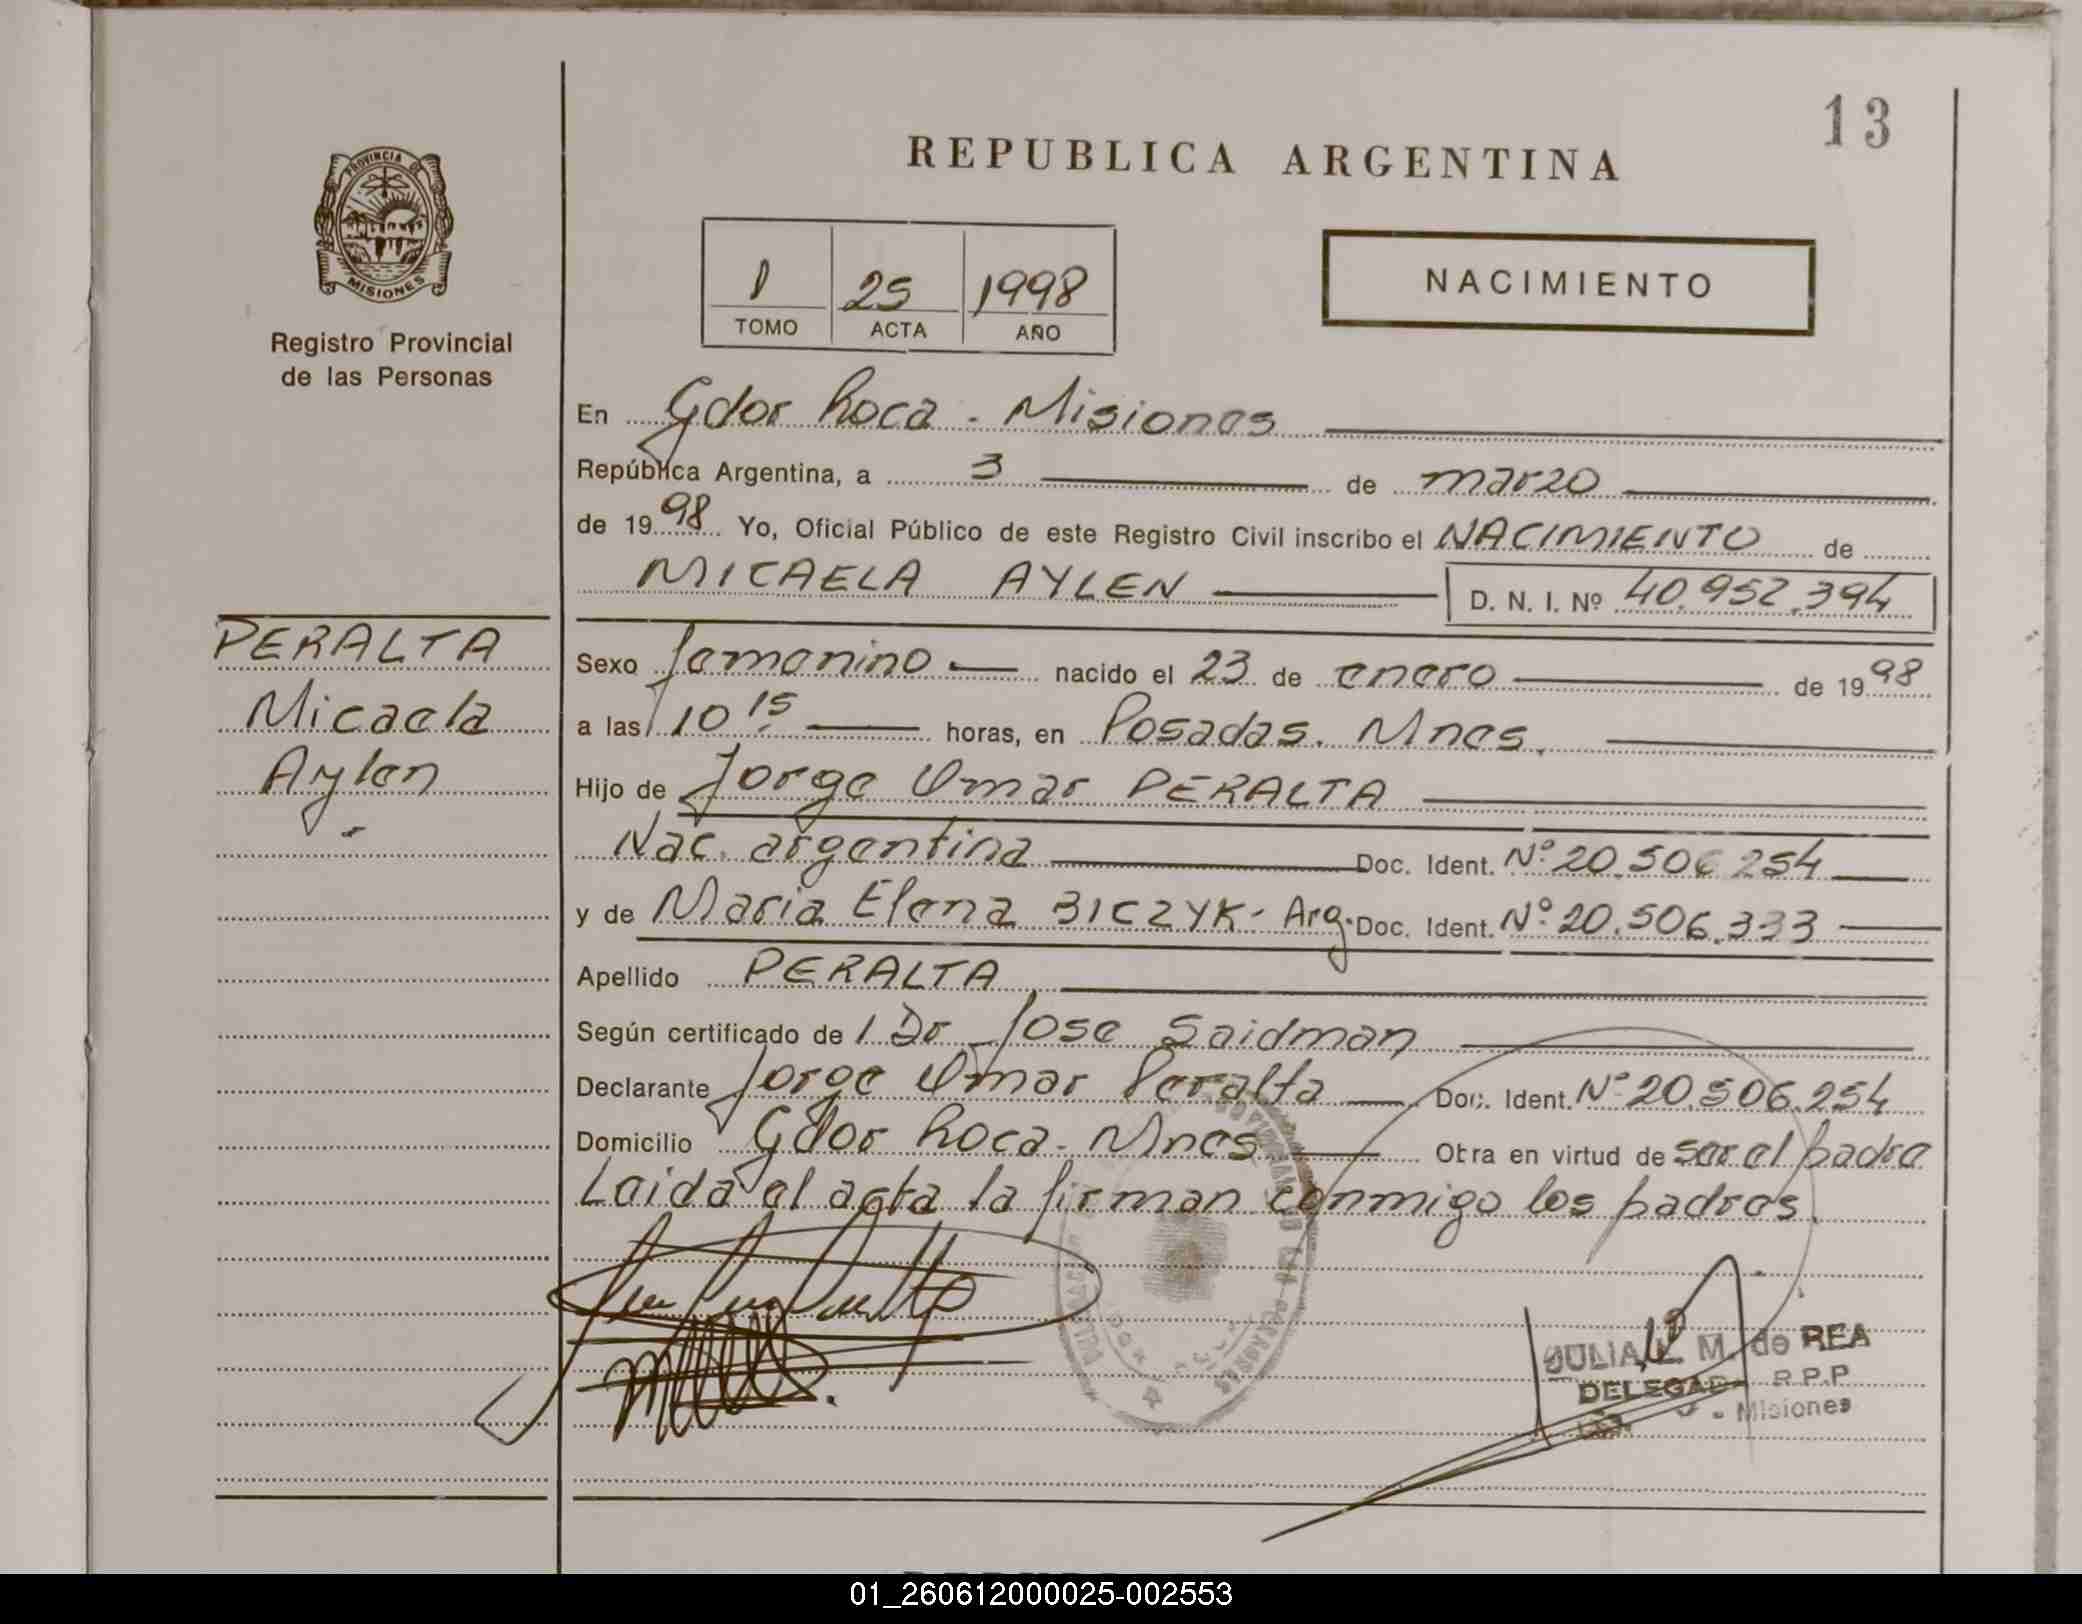 13
REPUBLICA ARGENTINA
PROVINCIA DE
MISIONES
Registro Provincial
de las Personas
1 25 1998
TOMO ACTA AÑO
NACIMIENTO
En Gdor Roca - Misiones
República Argentina, a 3 de marzo
de 1998 Yo, Oficial Público de este Registro Civil inscribo el NACIMIENTO de
MICAELA AYLEN D. N. I. Nº 40.952.394
PERALTA
Micaela
Aylen
Sexo femenino nacido el 23 de enero de 1998
a las 10 15 horas, en Posadas. Mnes.
Hijo de Jorge Omar PERALTA
Nac. argentina Doc. Ident. Nº 20.506.254
y de Maria Elena BICZYK - Arg. Doc. Ident. Nº 20.506.333
Apellido PERALTA
Según certificado de l Dr Jose Saidman
Declarante Jorge Omar Peralta Doc. Ident. Nº 20.506.254
Domicilio Gdor Roca - Mnes Obra en virtud de ser el padre
Leida el acta la firman conmigo los padres.
JULIA L. M. de REA
DELEGAD R.P.P
- Misiones
01_260612000025-002553